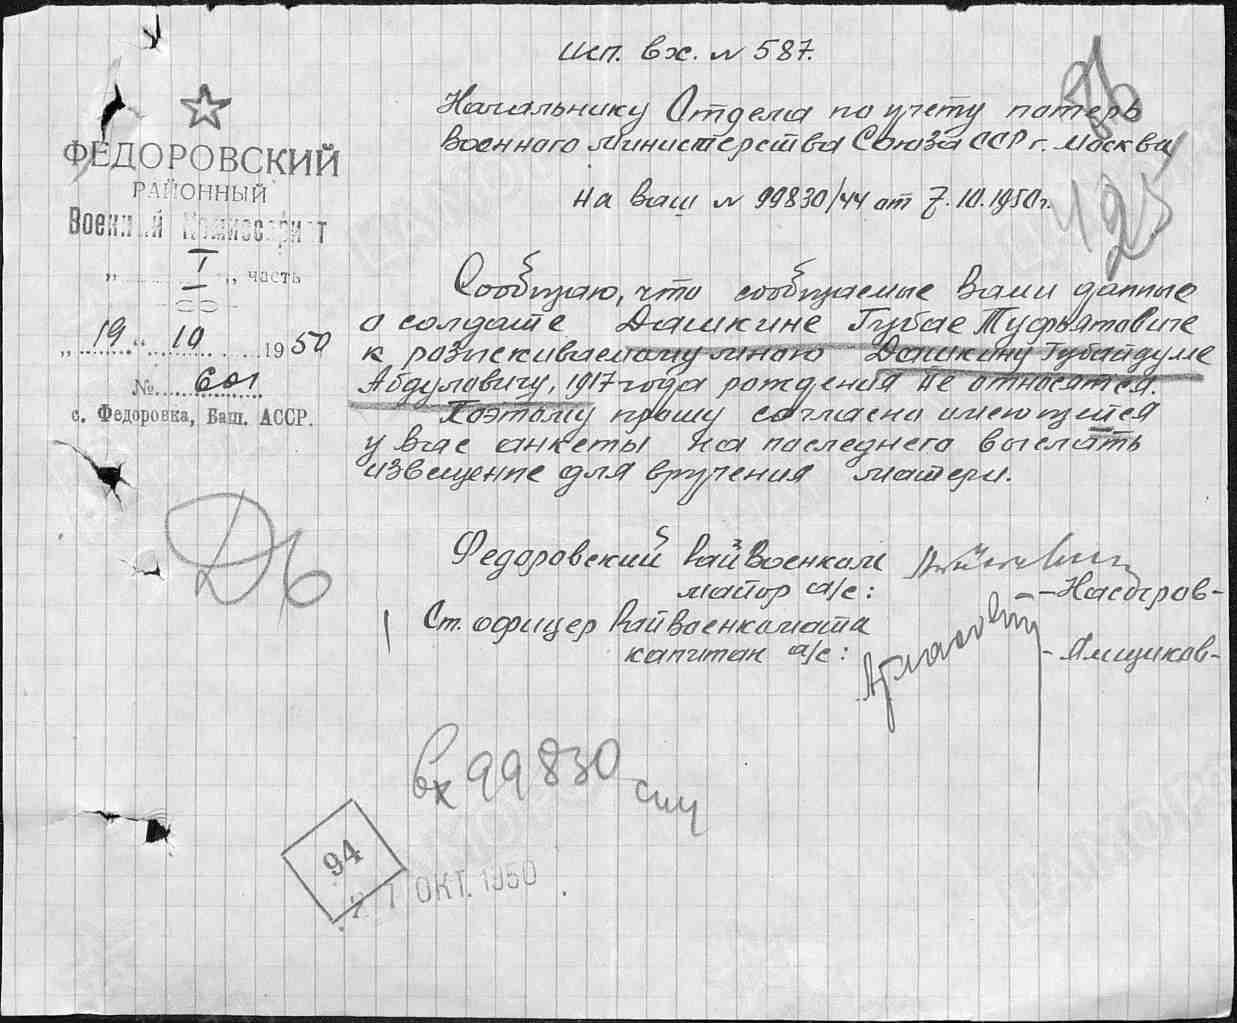 исп. вх. № 587.
Начальнику Отдела по учету потерь
Военного Министерства Союза ССР г. Москва
на ваш № 99830/44 от 7.10.1950г.
ФЕДОРОВСКИЙ
РАЙОННЫЙ
Военный Комиссариат
„ I „ часть
„ 19 “ 10 1950
№ 601
с. Федоровка, Баш. АССР.
Сообщаю, что сообщаемые Вами данные
о солдате Дашкине Губае Туфьятовиче
к разыскиваемому мною Дашкину Губайдуме
Абдуловичу, 1917 года рождения не относятся.
Поэтому прошу согласно имеющейся
у вас анкеты на последнего выслать
извещение для вручения матери.
Федоровский Райвоенком
майор а/с: -Насыров-
Ст. офицер Райвоенкомата
капитан а/с: -Ямщиков-
125
вх 99830
94
ОКТ. 1950